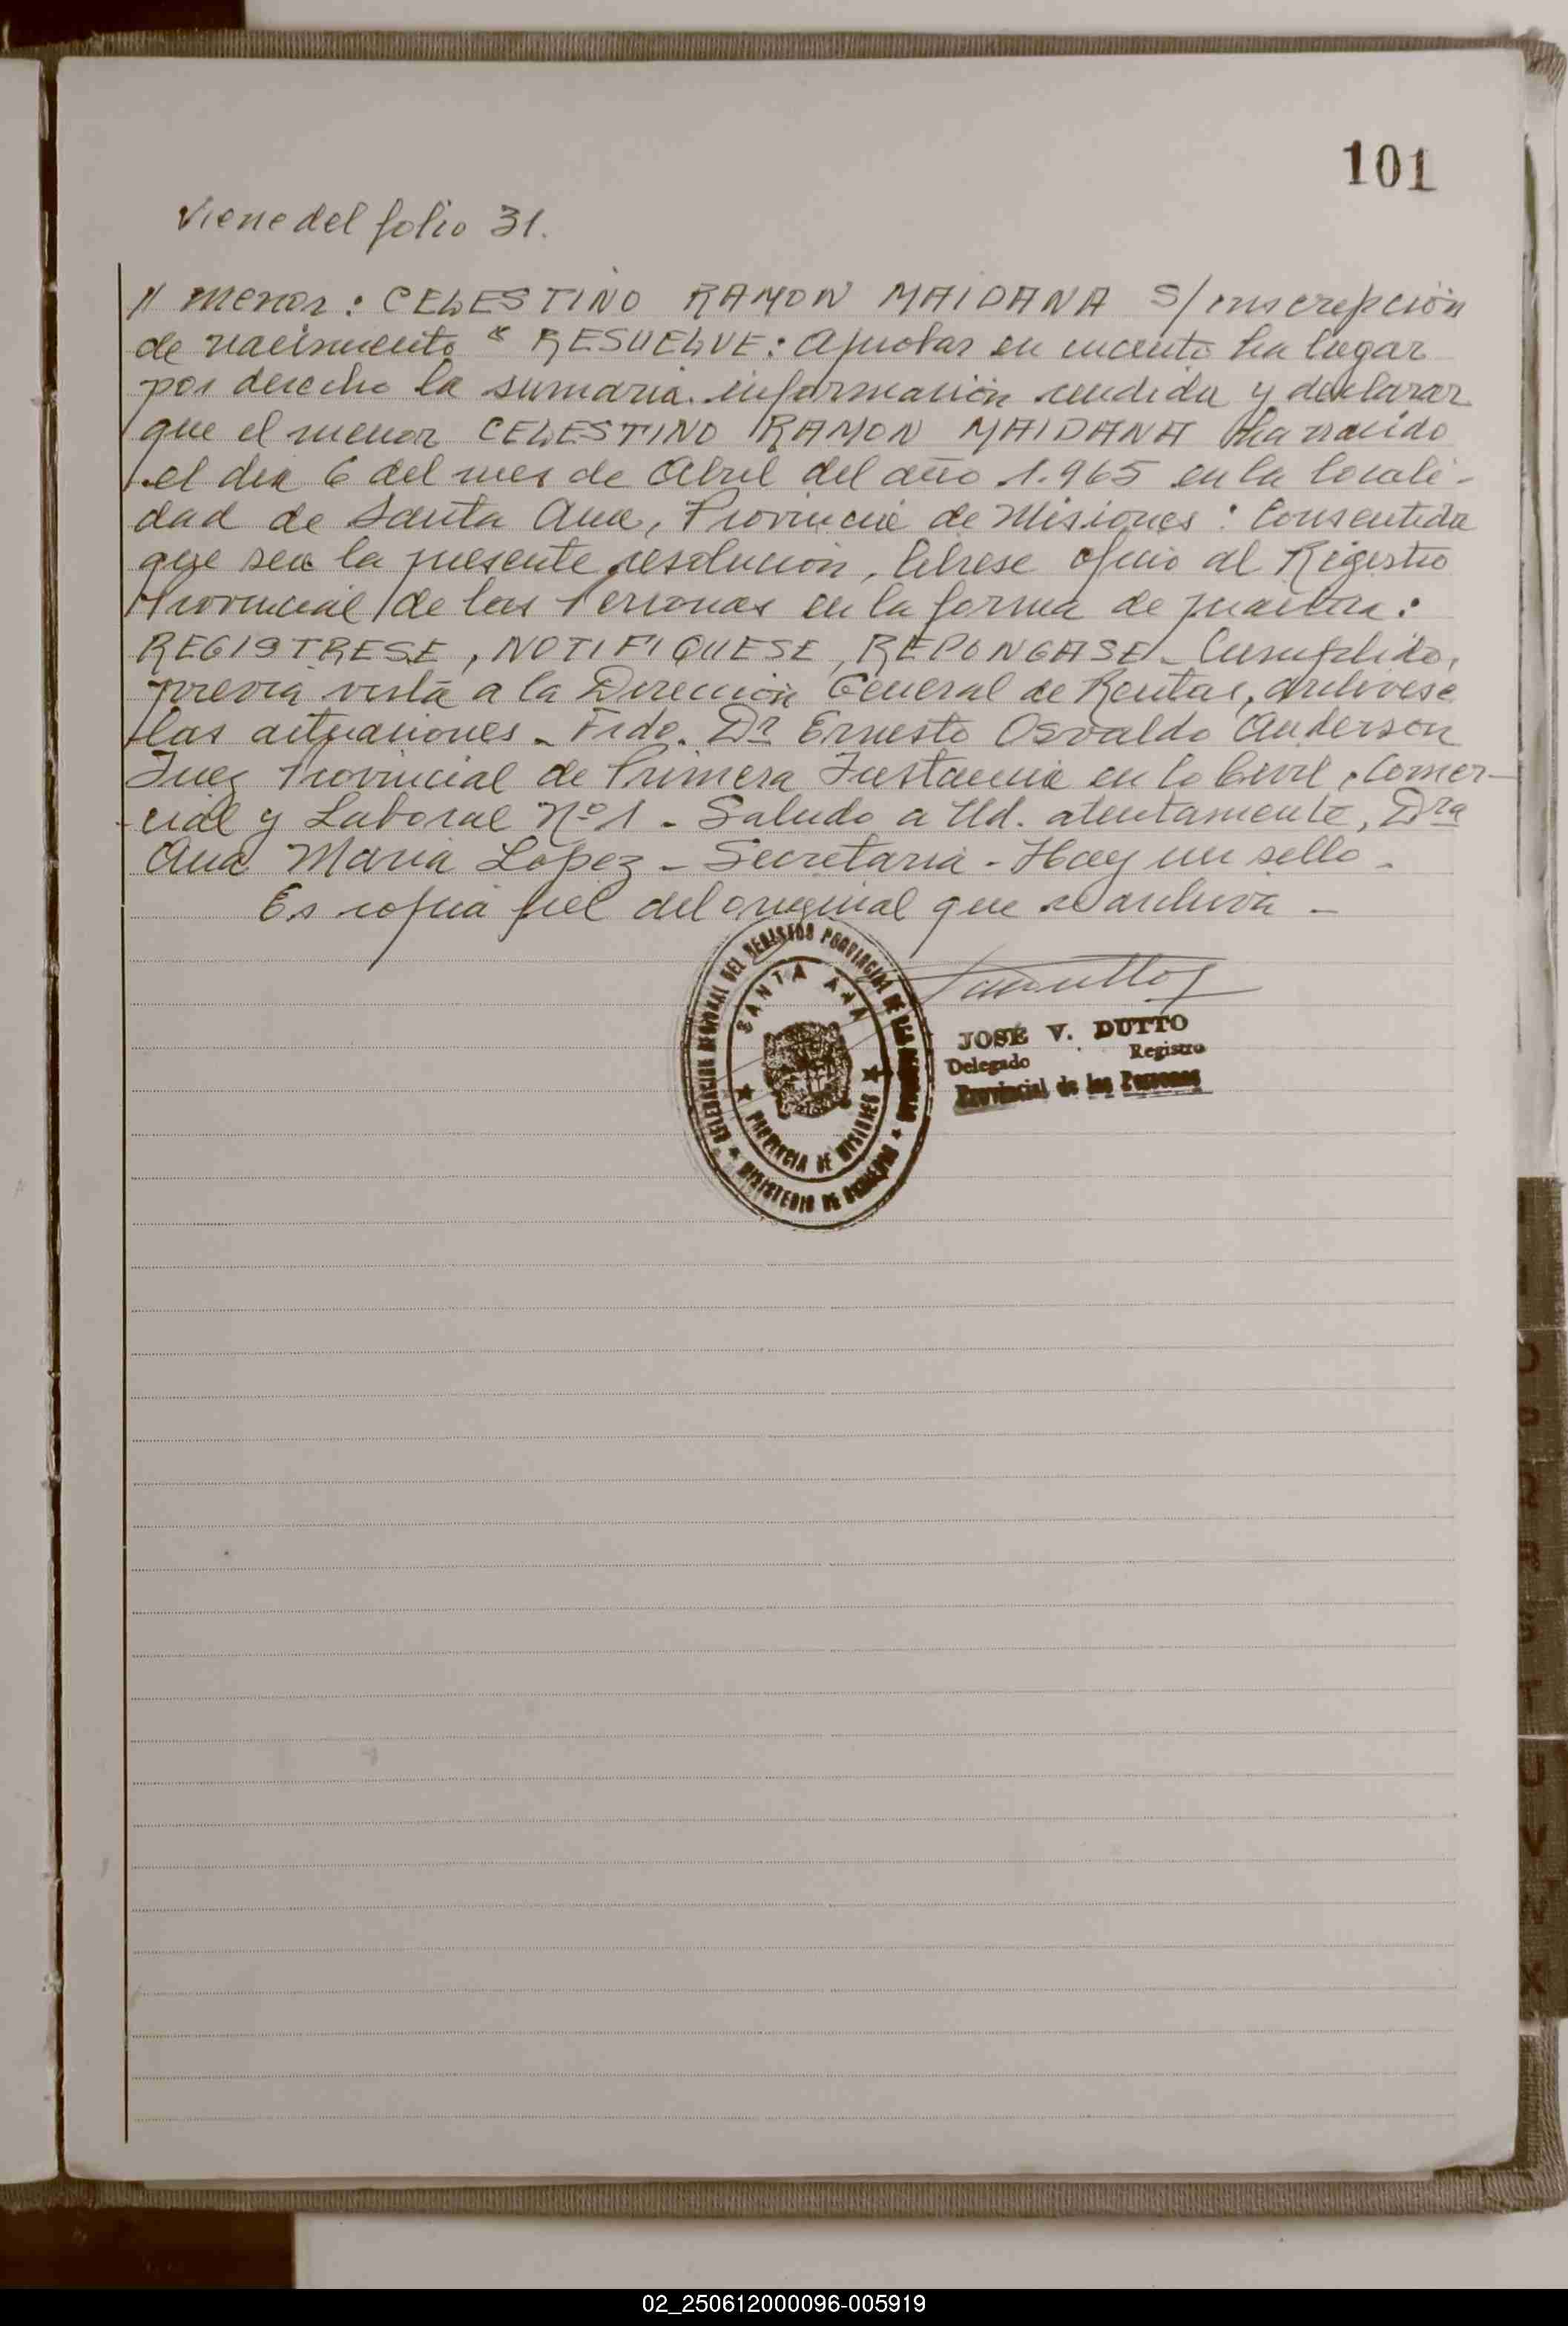 101
Viene del folio 31.
// menor: CELESTINO RAMON MAIDANA S/ inscripción
de nacimiento " RESUELVE: Aprobar en cuanto ha lugar
por derecho la sumaria información rendida y declarar
que el menor CELESTINO RAMON MAIDANA ha nacido
el día 6 del mes de Abril del año 1.965 en la locali-
dad de Santa Ana, Provincia de Misiones: Consentida
que sea la presente resolución, líbrese oficio al Registro
Provincial de las Personas en la forma de práctica:
REGISTRESE, NOTIFIQUESE, REPONGASE - Cumplido,
previa vista a la Dirección General de Rentas, archívese
las actuaciones - Frdo. Dr Ernesto Osvaldo Anderson
Juez Provincial de Primera Instancia en lo Civil, Comer-
cial y Laboral Nº 1 - Saludo a Ud. atentamente, Dra
Ana María López - Secretaria - Hay un sello -
Es copia fiel del original que se archiva -
DELEGACION REGIONAL DEL REGISTRO PROVINCIAL DE LAS PERSONAS
SANTA ANA
PROVINCIA DE MISIONES
MINISTERIO DE GOBIERNO
JOSÉ V. DUTTO
Delegado Registro
Provincial de las Personas
O
P
Q
R
S
T
U
V
W
X
02_250612000096-005919